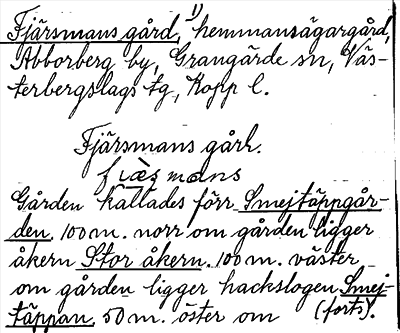 Fjärsmans gård,¹⁾ hemmansägargård,
Abborberg by, Grangärde sn, Väs-
terbergslags tg, Kopp l.
Fjärsmans gårh.
Gården kallades förr Smejtäppgår-
den. 100 m. norr om gården ligger
åkern Stor åkern. 100 m. väster
om gården ligger hackslogen Smej-
täppan. 50 m. öster om (forts).